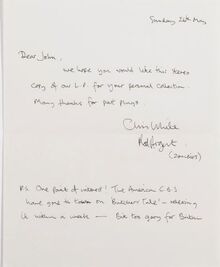 Sunday 26th May
Dear John,
we hope you would like this stereo
copy of our L.P. for your personal collection.
Many thanks for past plugs.
Chris White
Rod Argent
(Zombies)
P.S. One point of interest! The American C.B.S.
have gone to town on 'Butchers Tale' – releasing
it within a week — But too gory for Britain